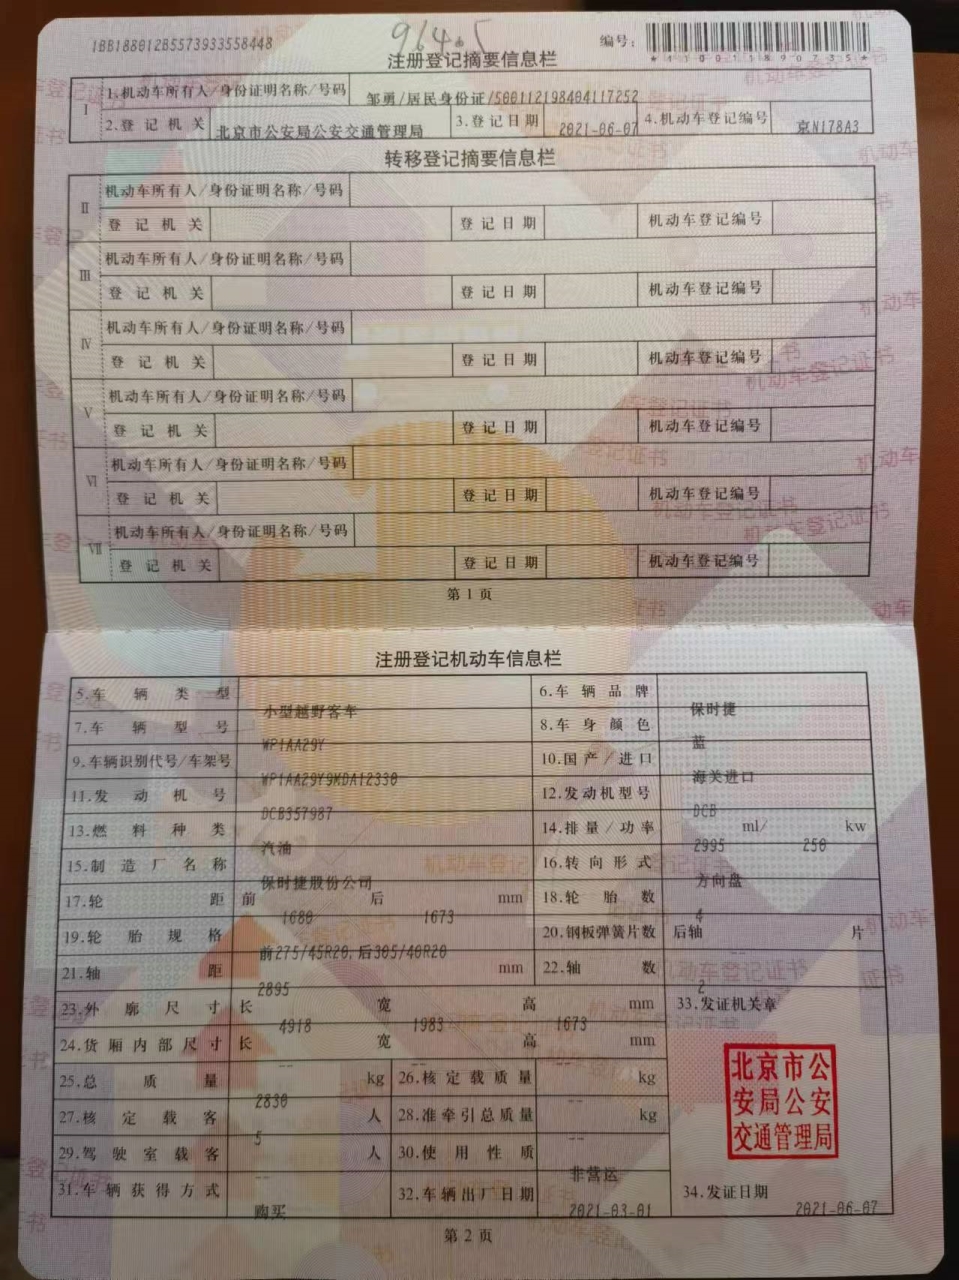 1BB188012B5573933558448
964.5
编号:
*110011890735*
注册登记摘要信息栏
I 1.机动车所有人/身份证明名称/号码 邹勇/居民身份证/500112198404117252
2.登记机关 北京市公安局公安交通管理局 3.登记日期 2021-06-07 4.机动车登记编号 京N178A3
转移登记摘要信息栏
II 机动车所有人/身份证明名称/号码
登记机关 登记日期 机动车登记编号
III 机动车所有人/身份证明名称/号码
登记机关 登记日期 机动车登记编号
IV 机动车所有人/身份证明名称/号码
登记机关 登记日期 机动车登记编号
V 机动车所有人/身份证明名称/号码
登记机关 登记日期 机动车登记编号
VI 机动车所有人/身份证明名称/号码
登记机关 登记日期 机动车登记编号
VII 机动车所有人/身份证明名称/号码
登记机关 登记日期 机动车登记编号
第1页
注册登记机动车信息栏
5.车辆类型 小型越野客车 6.车辆品牌 保时捷
7.车辆型号 WP1AA29Y 8.车身颜色 蓝
9.车辆识别代号/车架号 WP1AA29Y9MDA12330 10.国产/进口 海关进口
11.发动机号 DCB357987 12.发动机型号 DCB
13.燃料种类 汽油 14.排量/功率 2995 ml/ 250 kw
15.制造厂名称 保时捷股份公司 16.转向形式 方向盘
17.轮距 前 1680 后 1673 mm 18.轮胎数 4
19.轮胎规格 前275/45R20,后305/40R20 20.钢板弹簧片数 后轴 -- 片
21.轴距 2895 mm 22.轴数 2
23.外廓尺寸 长 4918 宽 1983 高 1673 mm 33.发证机关章
24.货厢内部尺寸 长 -- 宽 -- 高 -- mm
25.总质量 2830 kg 26.核定载质量 -- kg
27.核定载客 5 人 28.准牵引总质量 -- kg
29.驾驶室载客 -- 人 30.使用性质 非营运
31.车辆获得方式 购买 32.车辆出厂日期 2021-03-01 34.发证日期 2021-06-07
北京市公
安局公安
交通管理局
第2页